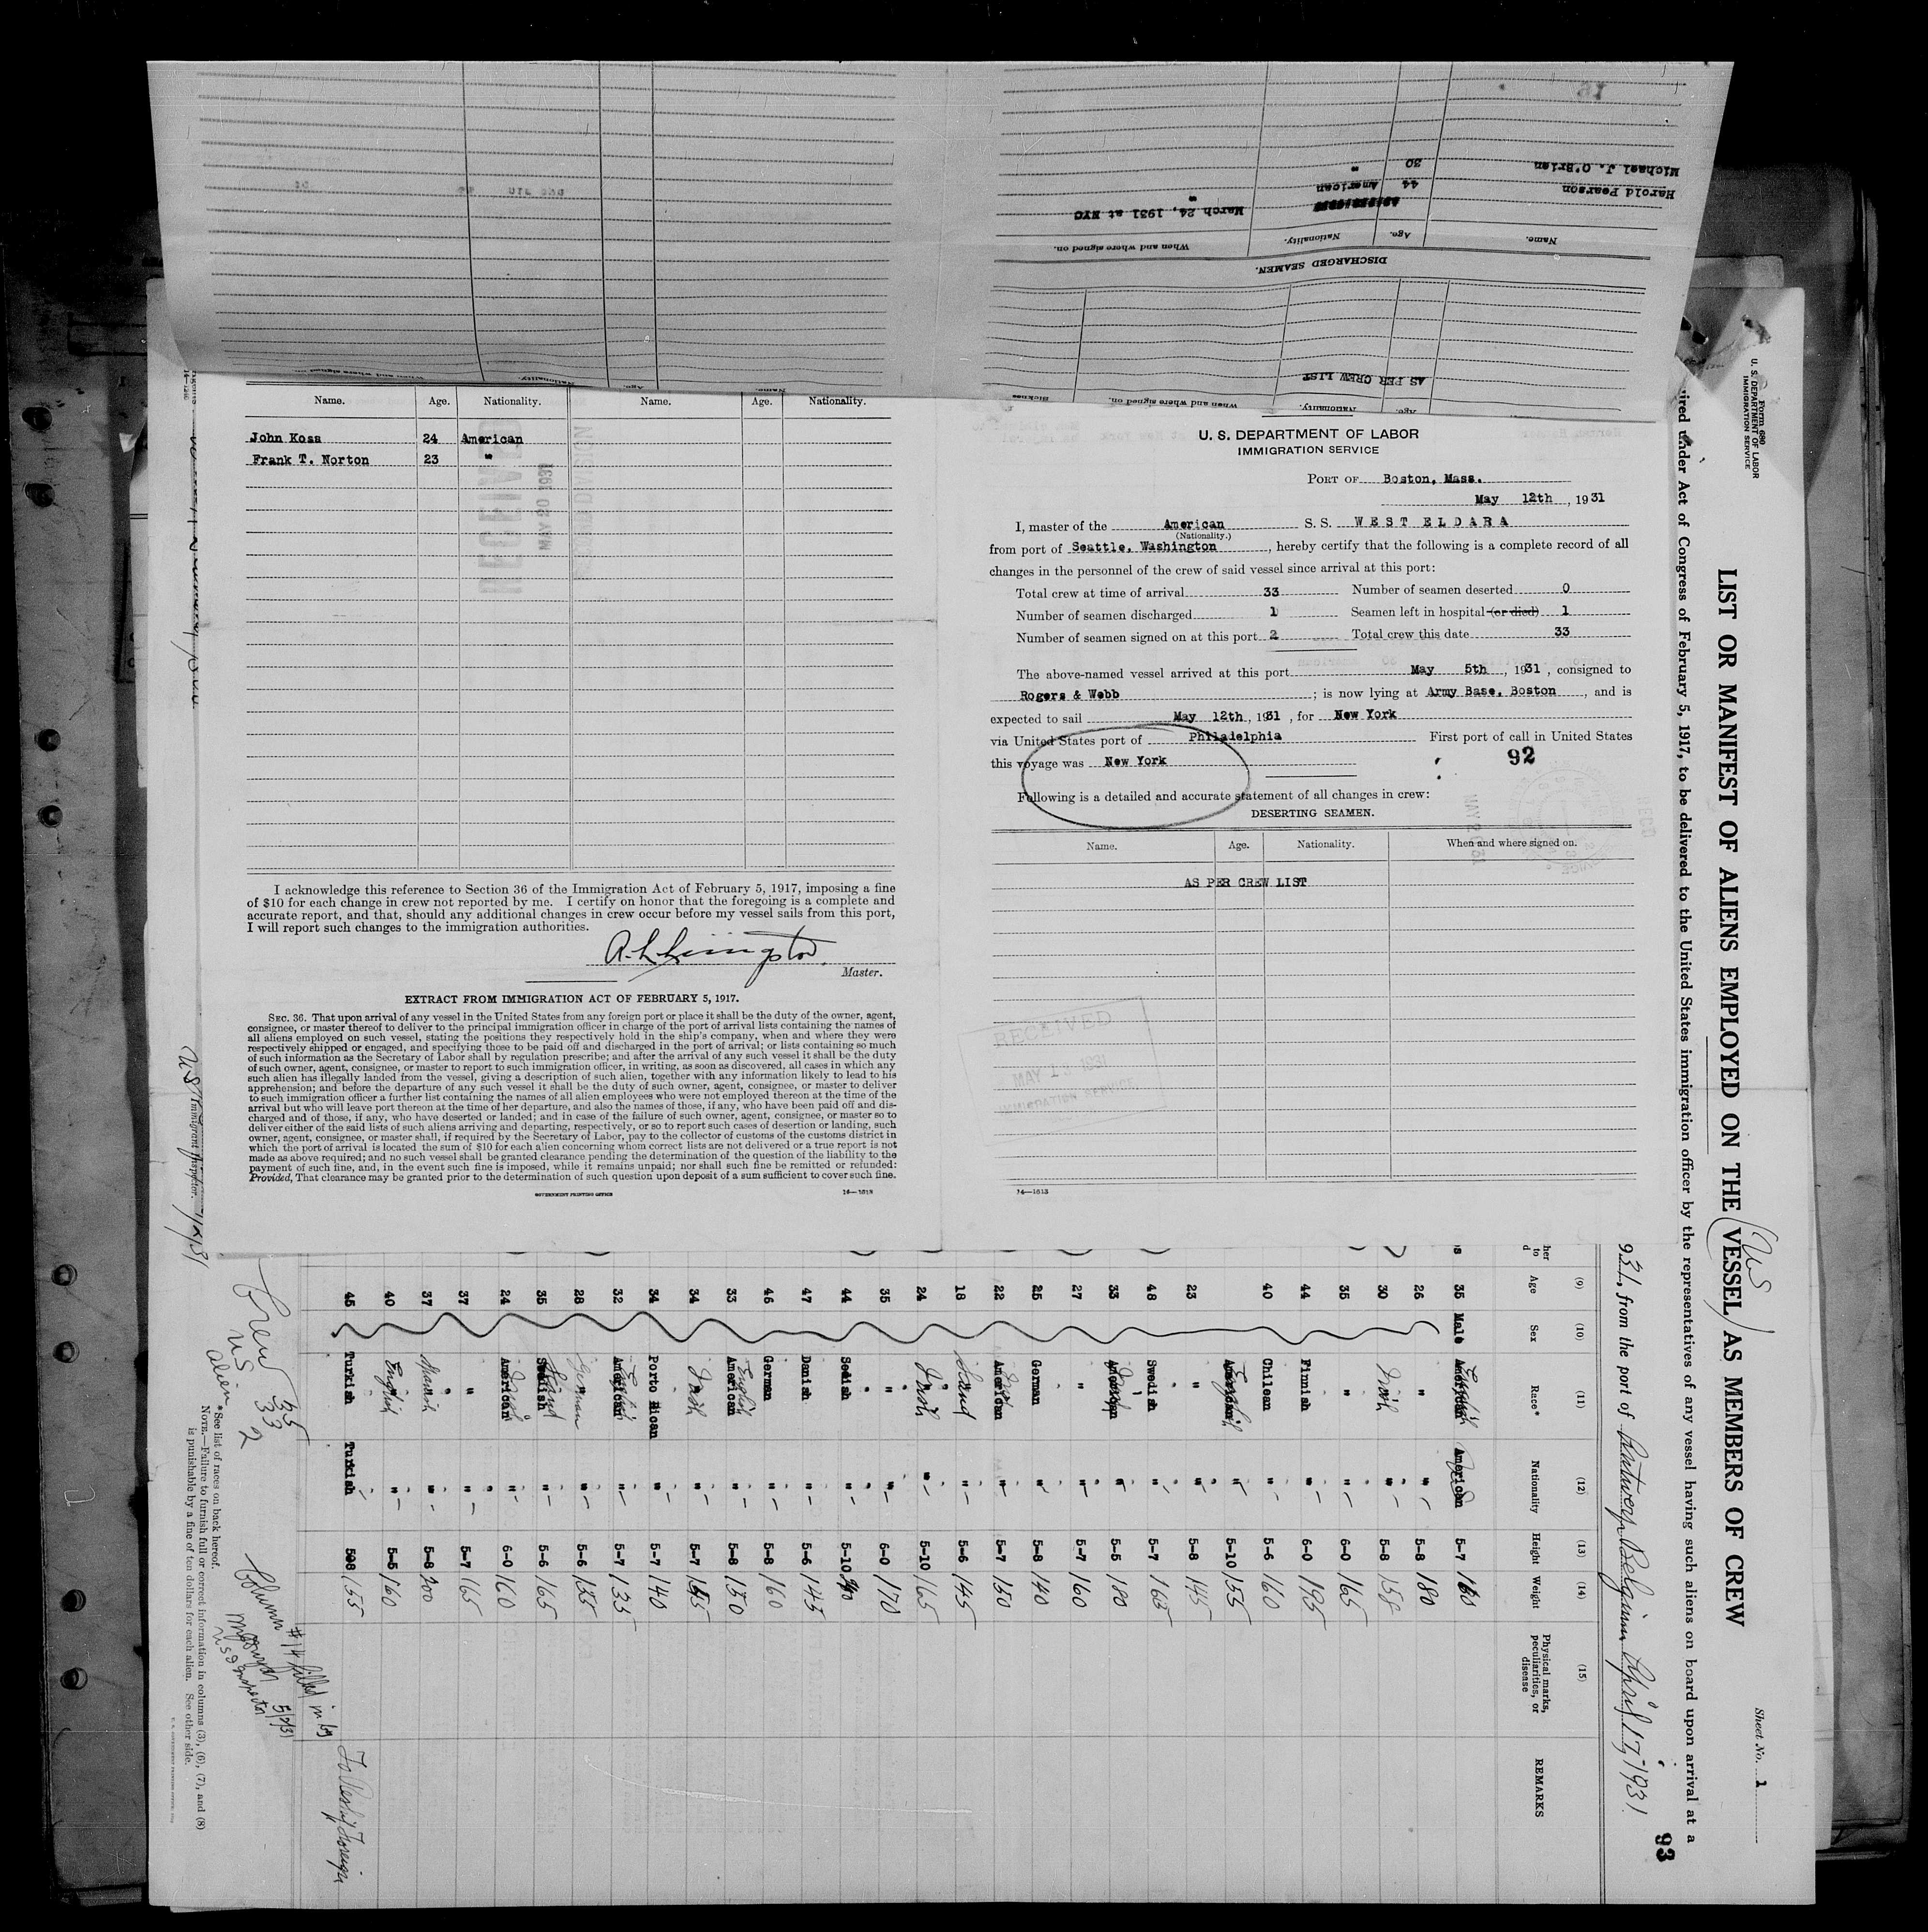 Michael J. O'Brien 30 "
Harold Pearson 44 American "
March 24, 1931 at NYC
Name. Age. Nationality. When and where signed on.
DISCHARGED SEAMEN.
AS PER CREW LIST
Name. Age. Nationality. When and where signed on. Sickness
Name. Age. Nationality. Name. Age. Nationality.
John Koss 24 American
Frank T. Norton 23 "
MAY 20 1931
I acknowledge this reference to Section 36 of the Immigration Act of February 5, 1917, imposing a fine
of $10 for each change in crew not reported by me. I certify on honor that the foregoing is a complete and
accurate report, and that, should any additional changes in crew occur before my vessel sails from this port,
I will report such changes to the immigration authorities.
Master.
EXTRACT FROM IMMIGRATION ACT OF FEBRUARY 5, 1917.
SEC. 36. That upon arrival of any vessel in the United States from any foreign port or place it shall be the duty of the owner, agent,
consignee, or master thereof to deliver to the principal immigration officer in charge of the port of arrival lists containing the names of
all aliens employed on such vessel, stating the positions they respectively hold in the ship's company, when and where they were
respectively shipped or engaged, and specifying those to be paid off and discharged in the port of arrival; or lists containing so much
of such information as the Secretary of Labor shall by regulation prescribe; and after the arrival of any such vessel it shall be the duty
of such owner, agent, consignee, or master to report to such immigration officer, in writing, as soon as discovered, all cases in which any
such alien has illegally landed from the vessel, giving a description of such alien, together with any information likely to lead to his
apprehension; and before the departure of any such vessel it shall be the duty of such owner, agent, consignee, or master to deliver
to such immigration officer a further list containing the names of all alien employees who were not employed thereon at the time of the
arrival but who will leave port thereon at the time of her departure, and also the names of those, if any, who have been paid off and dis-
charged and of those, if any, who have deserted or landed; and in case of the failure of such owner, agent, consignee, or master so to
deliver either of the said lists of such aliens arriving and departing, respectively, or so to report such cases of desertion or landing, such
owner, agent, consignee, or master shall, if required by the Secretary of Labor, pay to the collector of customs of the customs district in
which the port of arrival is located the sum of $10 for each alien concerning whom correct lists are not delivered or a true report is not
made as above required; and no such vessel shall be granted clearance pending the determination of the question of the liability to the
payment of such fine, and, in the event such fine is imposed, while it remains unpaid; nor shall such fine be remitted or refunded:
Provided, That clearance may be granted prior to the determination of such question upon deposit of a sum sufficient to cover such fine.
GOVERNMENT PRINTING OFFICE 14—1613
U. S. DEPARTMENT OF LABOR
IMMIGRATION SERVICE
PORT OF Boston, Mass.
May 12th, 1931
I, master of the American S. S. WEST ELDARA
(Nationality.)
from port of Seattle, Washington, hereby certify that the following is a complete record of all
changes in the personnel of the crew of said vessel since arrival at this port:
Total crew at time of arrival 33 Number of seamen deserted 0
Number of seamen discharged 1 Seamen left in hospital (or died) 1
Number of seamen signed on at this port 2 Total crew this date 33
The above-named vessel arrived at this port May 5th, 1931, consigned to
Rogers & Webb; is now lying at Army Base, Boston, and is
expected to sail May 12th, 1931, for New York
via United States port of Philadelphia First port of call in United States
this voyage was New York
92
Following is a detailed and accurate statement of all changes in crew:
DESERTING SEAMEN.
Name. Age. Nationality. When and where signed on.
AS PER CREW LIST
RECEIVED
MAY 13 1931
IMMIGRATION SERVICE
14—1613
Form 680
U. S. DEPARTMENT OF LABOR
IMMIGRATION SERVICE
Sheet No. 1
LIST OR MANIFEST OF ALIENS EMPLOYED ON THE VESSEL AS MEMBERS OF CREW
US
ired under Act of Congress of February 5, 1917, to be delivered to the United States immigration officer by the representatives of any vessel having such aliens on board upon arrival at a
93
931, from the port of Antwerp Belgium April 17, 1931
(9) (10) (11) (12) (13) (14) (15)
Age Sex Race* Nationality Height Weight Physical marks, peculiarities, or disease REMARKS
35 Male American English American 5-7 160
26 " " 5-8 180
30 Irish " 5-8 158
35 " " 6-0 165
44 Finnish " 6-0 195
40 Chilean " 5-6 160
American English " 5-10 155
23 " " 5-8 145
48 Swedish " 5-7 165
33 American " 5-5 180
27 " " 5-7 160
25 German " 5-8 140
22 American Irish " 5-7 150
18 Scand " 5-6 145
24 Irish " 5-10 165
35 " " 6-0 170
44 Sedish " 5-10
47 Danish " 5-6 145
46 German " 5-8 160
33 American English " 5-8 150
34 Irish " 5-7
34 Porto Rican " 5-7 140
32 American English " 5-7 135
28 German " 5-6 135
35 Swedish Scand " 5-6 165
24 American Irish " 6-0 160
37 " " 5-7 165
37 Spanish " 5-8 200
40 English " 5-5 160
45 Turkish Turkish 5-8 155
Crew 35
US 33
alien 2
Column #14 filled in by
US Inspector 5/5/31
To Verify Foreign
*See list of races on back hereof.
NOTE.—Failure to furnish full or correct information in columns (3), (6), (7), and (8)
is punishable by a fine of ten dollars for each alien. See other side.
US Immigrant Inspector.